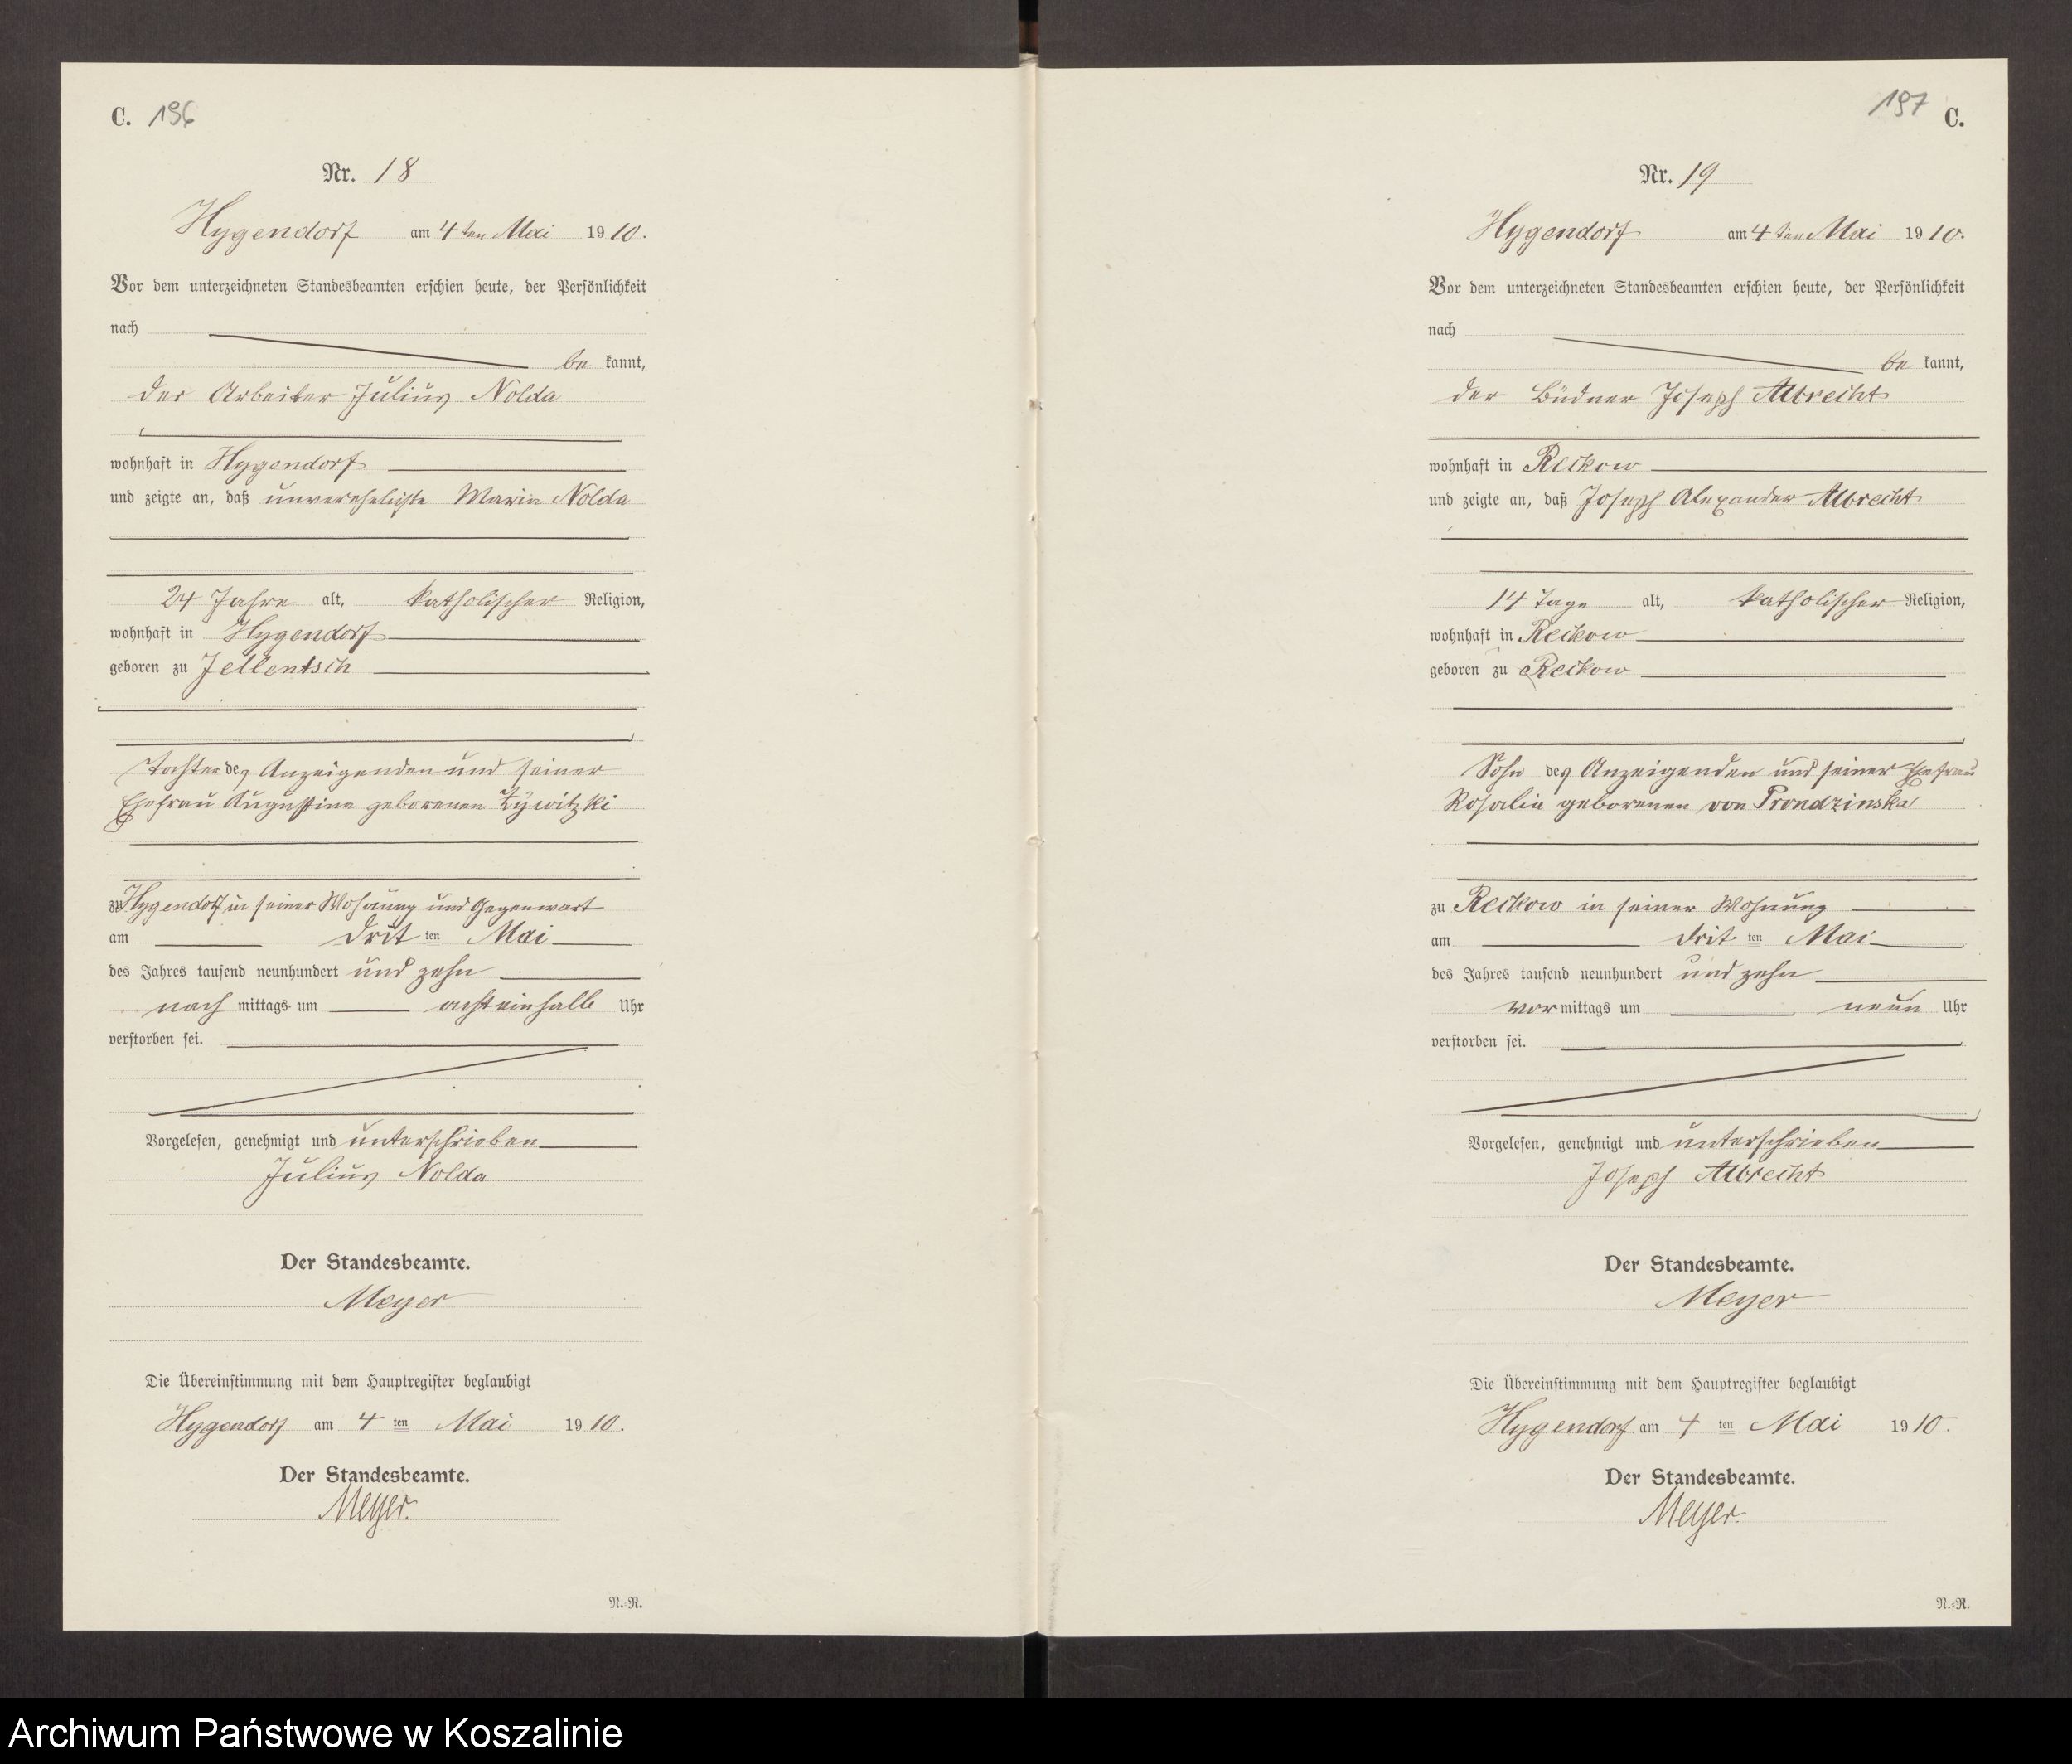 C. 196
Nr. 18
Hygendorf am 4ten Mai 1910.
Vor dem unterzeichneten Standesbeamten erschien heute, der Persönlichkeit
nach
be kannt,
der Arbeiter Julius Nolda
wohnhaft in Hygendorf
und zeigte an, daß unverehelichte Maria Nolda
24 Jahre alt, katholischer Religion,
wohnhaft in Hygendorf
geboren zu Jellentsch
Tochter des Anzeigenden und seiner
Ehefrau Augustine geborenen
zu Hygendorf in seiner Wohnung und Gegenwart
am drit ten Mai
des Jahres tausend neunhundert und zehn
nach mittags um achteinhalb Uhr
verstorben sei.
Vorgelesen, genehmigt und unterschrieben
Julius Nolda
Der Standesbeamte.
Meyer
Die Übereinstimmung mit dem Hauptregister beglaubigt
Hygendorf am 4 ten Mai 1910.
Der Standesbeamte.
Meyer.
N.-R.
197 C.
Nr. 19
Hygendorf am 4ten Mai 1910.
Vor dem unterzeichneten Standesbeamten erschien heute, der Persönlichkeit
nach
be kannt,
der Büdner Joseph Albrecht
wohnhaft in Reckow
und zeigte an, daß Joseph Alexander Albrecht
14 Tage alt, katholischer Religion,
wohnhaft in Reckow
geboren zu Reckow
Sohn des Anzeigenden und seiner Ehefrau
Rosalie geborenen von Prondzinska
zu Reckow in seiner Wohnung
am drit ten Mai
des Jahres tausend neunhundert und zehn
vor mittags um neun Uhr
verstorben sei.
Vorgelesen, genehmigt und unterschrieben
Joseph Albrecht
Der Standesbeamte.
Meyer
Die Übereinstimmung mit dem Hauptregister beglaubigt
Hygendorf am 4 ten Mai 1910.
Der Standesbeamte.
Meyer.
N.-R.
Archiwum Państwowe w Koszalinie